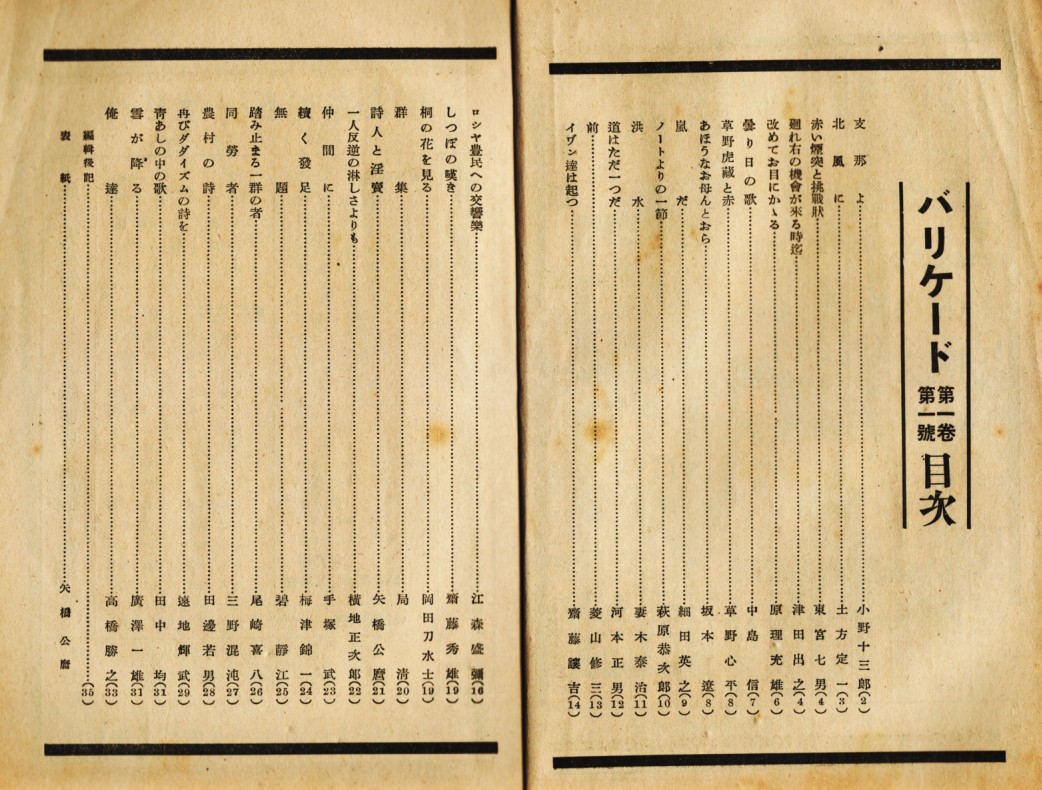 バリケード 第一卷 第一號 目次
支那よ 小野十三郎(2)
北風に 土方定一(3)
赤い煙突と挑戰狀 東宮七男(4)
廻れ右の機會が來る時迄 津田出之(4)
改めてお目にかゝる 原理充雄(6)
曇り日の歌 中島信(7)
草野虎藏と赤 草野心平(8)
あほうなお母んとおら 坂本遼(8)
嵐だ 細田英之(9)
ノートよりの一節 萩原恭次郎(10)
洪水 妻木泰治(11)
道はただ一つだ 河本正男(12)
前 菱山修三(13)
イワン達は起つ 齋藤讓吉(14)
ロシヤ農民への交響樂 江森盛彌(16)
しつぽの嘆き 齋藤秀雄(19)
桐の花を見る 岡田刀水士(19)
群集 局淸(20)
詩人と淫賣 矢橋公麿(21)
一人反逆の淋しさよりも 橫地正次郎(22)
仲間に 手塚武(23)
續く發足 梅津錦一(24)
無題 碧靜江(25)
踏み止まる一群の者 尾崎喜八(26)
同勞者 三野混沌(27)
農村の詩 田邊若男(28)
再びダダイズムの詩を 遠地輝武(29)
靑あしの中の歌 田中均(31)
雪が降る 廣澤一雄(31)
俺達 高橋勝之(33)
編輯後記 (35)
表紙 矢橋公麿